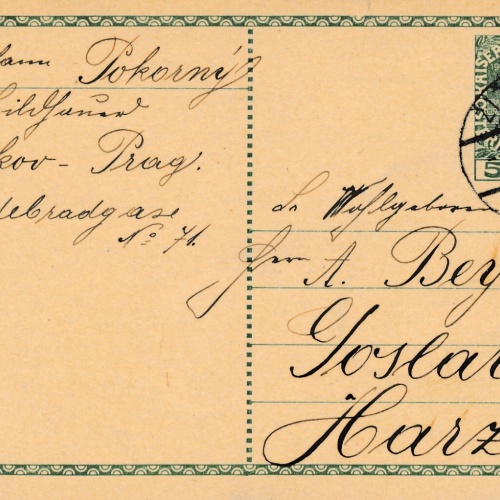 hann Pokorný
ildhauer
kov - Prag.
debradgase
No 71.
Sr. Wohlgeboren
Herrn A. Bey
Goslar
Harz
5